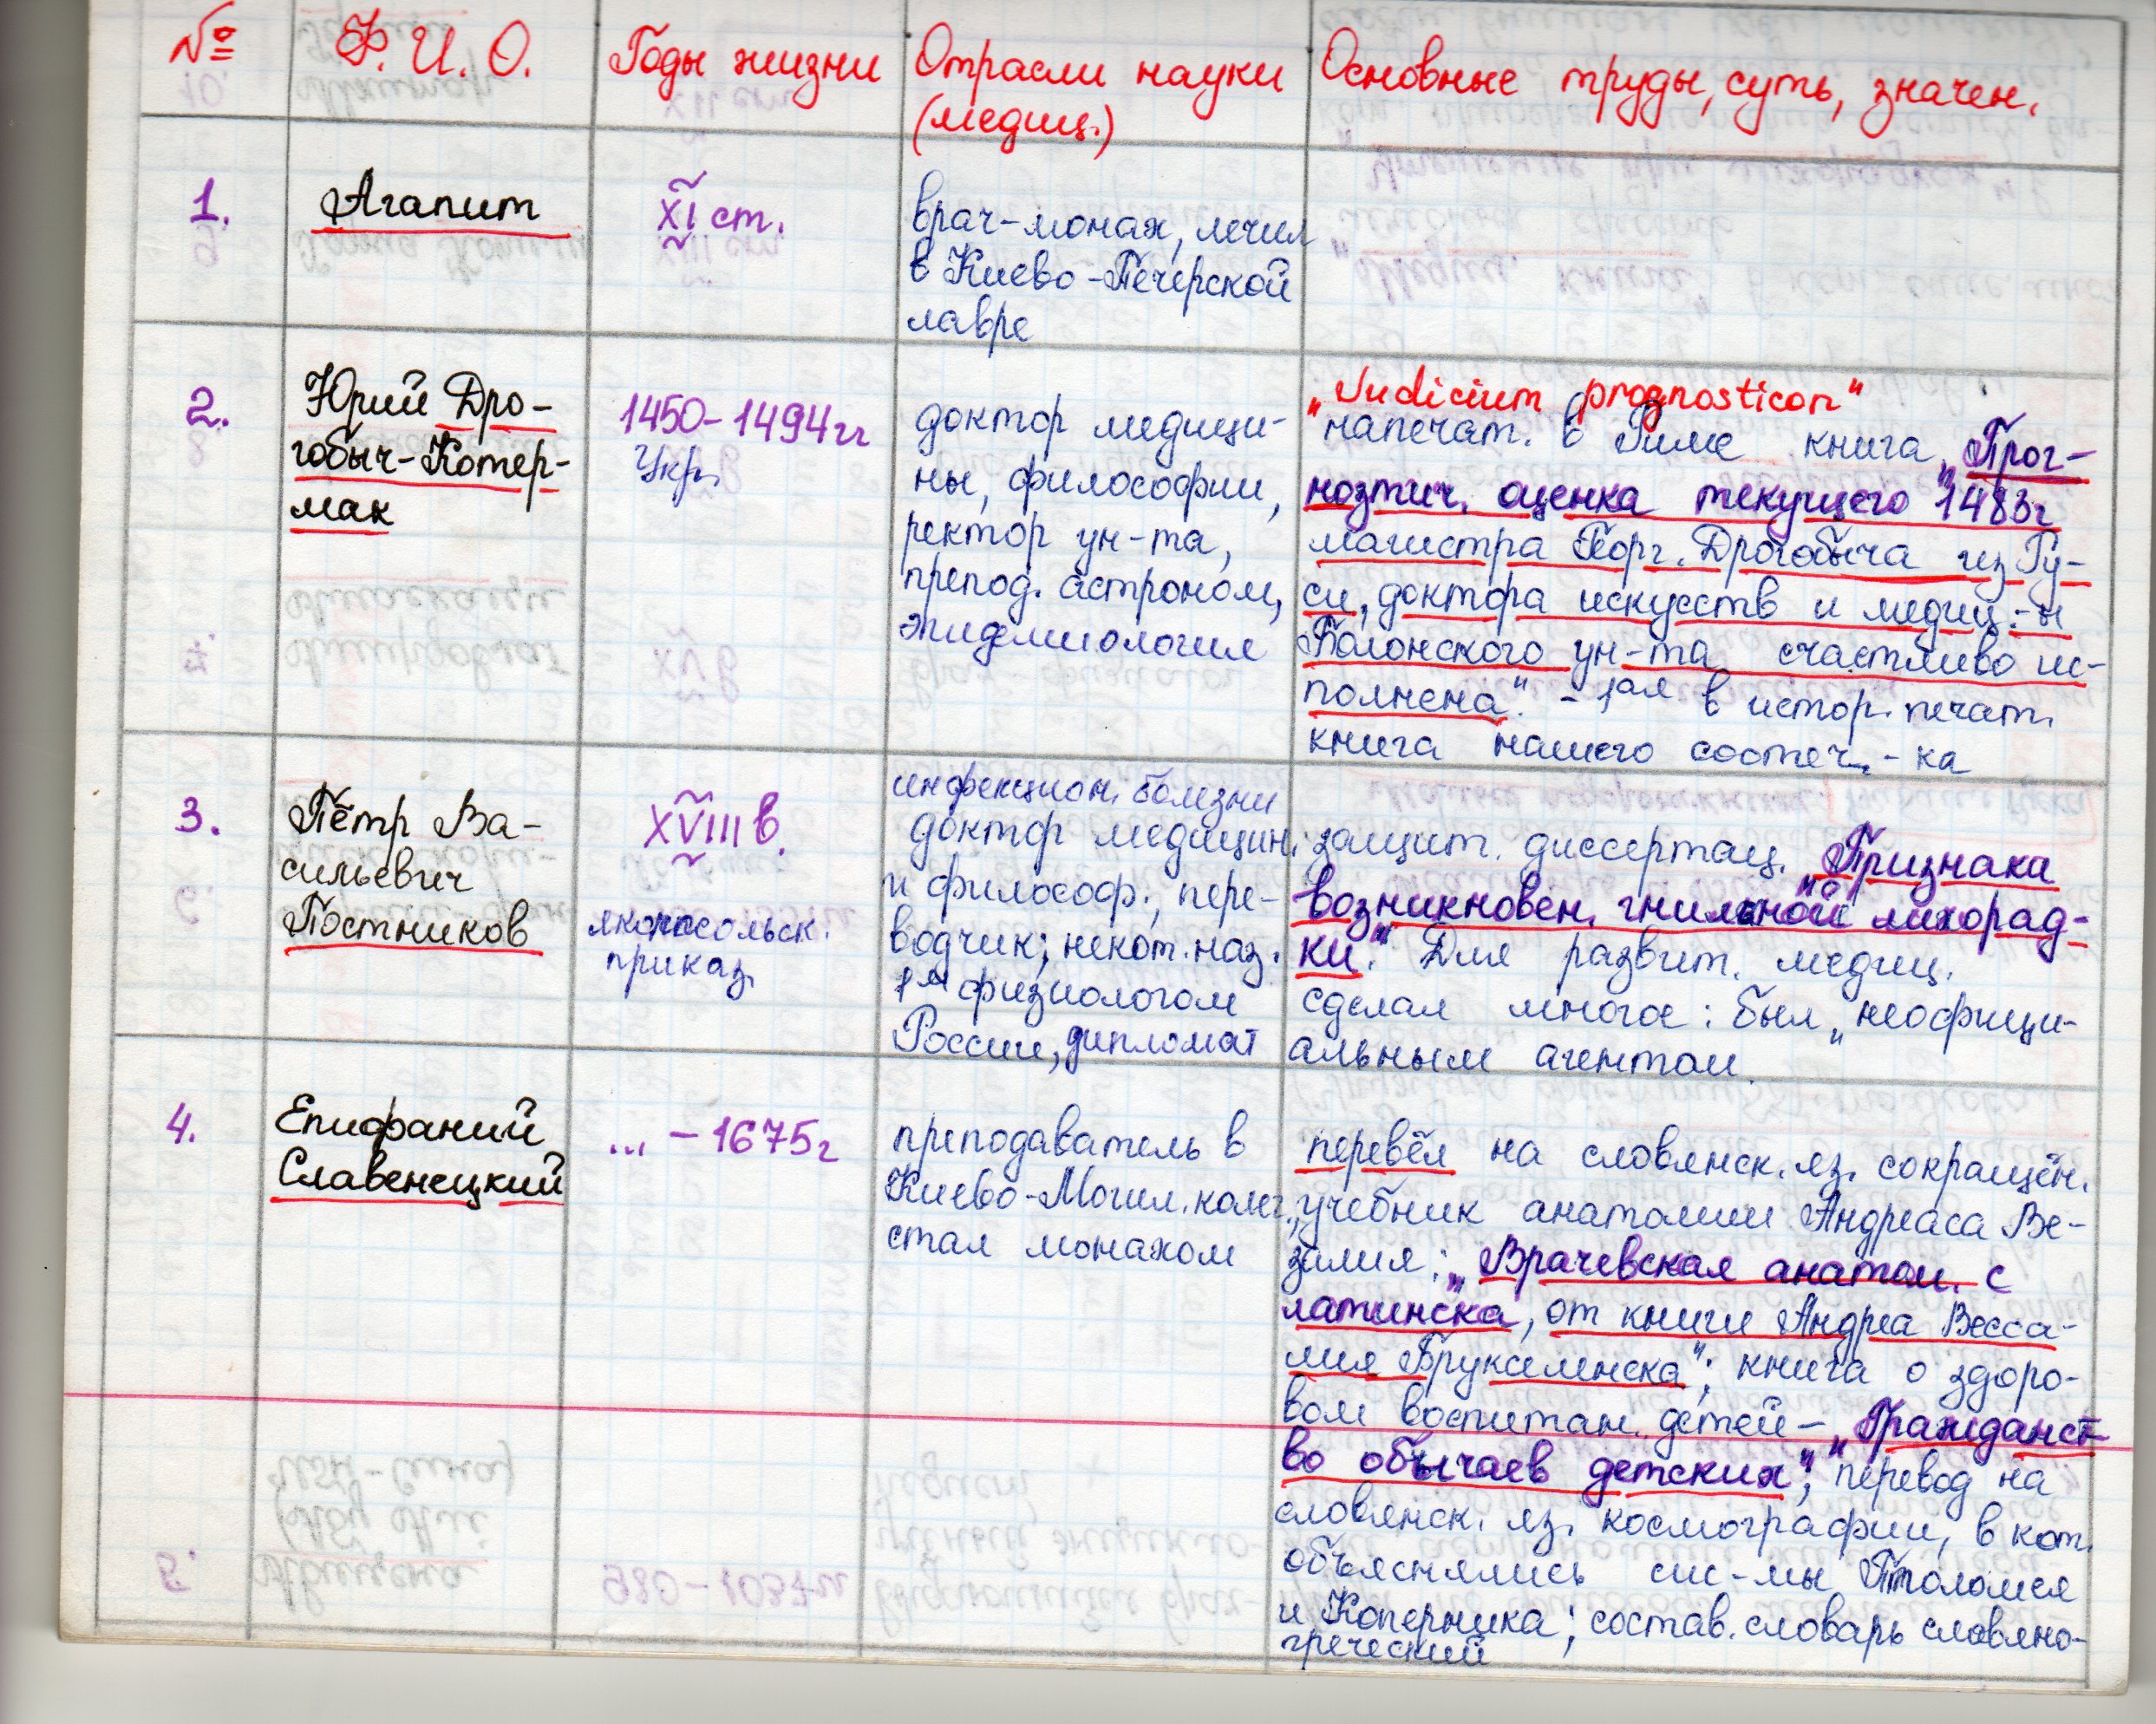 № Ф. И. О. Годы жизни Отрасли науки Основные труды, суть, значен.
(медиц.)
1. Агапит XI ст. врач-монах, лечил
в Киево-Печерской
лавре
2. Юрий Дро-
гобыч-Котер-
мак
1450-1494гг
Укр.
доктор медици-
ны, философии,
ректор ун-та,
препод. астроном,
эпидемиология
„Judicium prognosticon"
напечат. в Риме книга „Прог-
нозтич. оценка текущего "1483г
магистра Георг. Дрогобыча из Ру-
си, доктора искусств и медиц.-ы
Болонского ун-та счастливо ис-
полнена". - 1ая в истор. печат.
книга нашего соотеч.-ка
3. Пётр Ва-
сильевич
Постников
XVIII в.
посольск.
приказ
инфекцион. болезни
доктор медицин.
и философ., пере-
водчик; некот. наз.
1м физиологом
России, дипломат
защит. диссертац. „Признака
возникновен. гнилой лихорад-
ки". Для развит. медиц.
сделал многое: был „неофици-
альным агентом.
4. Епифаний
Славенецкий
... - 1675г
преподаватель в
Киево-Могил. колег.,
стал монахом
перевёл на словянск. яз. сокращён.
учебник анатомии Андреаса Ве-
залия: „Врачевская анатом. с
латинска, от книги Андреа Весса-
лия Брукселенска"; книга о здоро-
вом воспитан. детей - „Гражданст-
во обычаев детских"; перевод на
словянск. яз. космографии, в кот.
объяснялись сис-мы Птоломея
и Коперника; состав. словарь словяно-
греческий